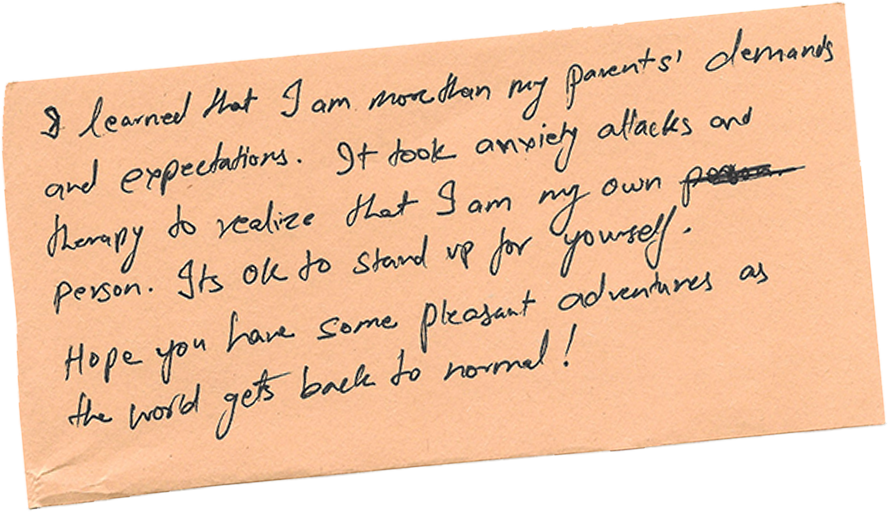 I learned that I am more than my parents' demands
and expectations. It took anxiety attacks and
therapy to realize that I am my own
person. Its ok to stand up for yourself.
Hope you have some pleasant adventures as
the world gets back to normal!